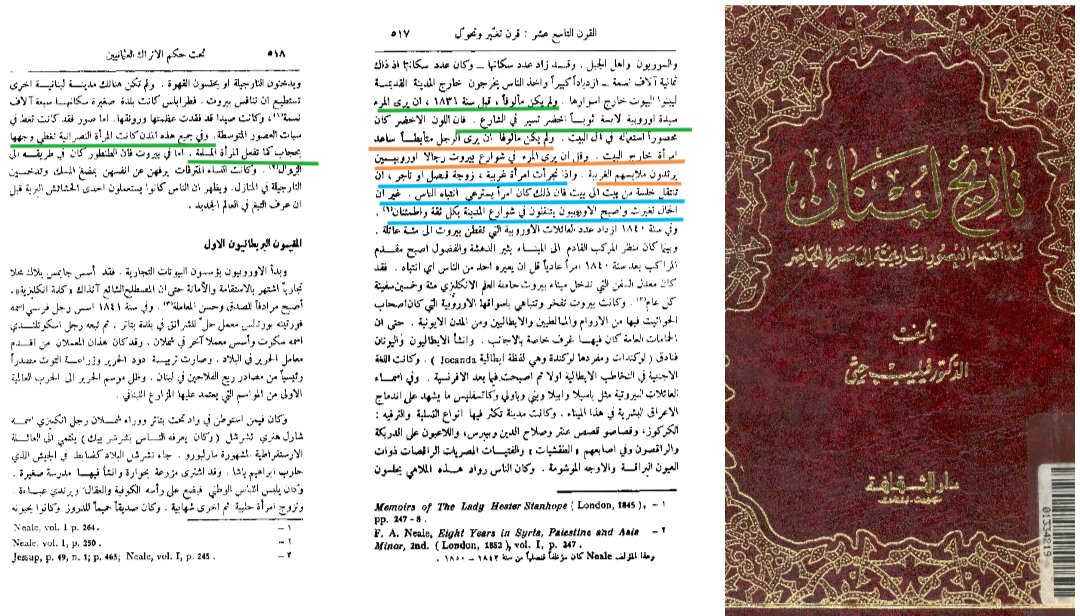 تاريخ لبنان
منذ أقدم العصور التاريخية إلى عصرنا الحاضر
تأليف
الدكتور فيليب حتي
دار الثقافة
01334219
القرن التاسع عشر : قرن تغيّر وتحوّل
٥١٧
والسوريون واهل الجبل . وقد زاد عدد سكانها – وكان عدد سكانها اذ ذاك
ثمانية آلاف نسمة – ازدياداً كبيراً واخذ الناس يخرجون خارج المدينة القديمة
ليبنوا البيوت خارج اسوارها . ولم يكن مألوفاً ، قبل سنة ١٨٣١ ، ان يرى المرء
سيدة اوروبية لابسة ثوباً أخضر تسير في الشارع . فان اللون الاخضر كان
محصوراً استعماله في آل البيت . ولم يكن مألوفاً ان يرى الرجل متأبطاً ساعد
امرأة خارج البيت . وقل ان يرى المرء في شوارع بيروت رجالا اوروبيين
يرتدون ملابسهم الغربية . واذا تجرأت امرأة غربية ، زوجة قنصل او تاجر ، ان
تنتقل خلسة من بيت الى بيت فان ذلك كان امراً يسترعي انتباه الناس . غير ان
الحال تغيرت واصبح الاوروبيون يتنقلون في شوارع المدينة بكل ثقة واطمئنان(١) .
وفي سنة ١٨٤٠ ازداد عدد العائلات الاوروبية التي تقطن بيروت الى مئة عائلة .
وبينما كان منظر المركب القادم الى الميناء يثير الدهشة والفضول اصبح مقدم
المراكب بعد سنة ١٨٤٠ امراً عادياً قل ان يعيره احد من الناس اي انتباه . فقد
كان معدل السفن التي تدخل ميناء بيروت حاملة العلم الانكليزي مئة وخمسين سفينة
كل عام(٢) . وكانت بيروت تفخر وتتباهى باسواقها الاوروبية التي كان اصحاب
الحوانيت فيها من الاروام والمالطيين والايطاليين ومن المدن الايونية . حتى ان
الحمامات العامة كان فيها غرف خاصة بالاجانب . وانشأ الايطاليون واليونان
فنادق ( لوكندات ومفردها لوكندة وهي لفظة ايطالية locanda ) . وكانت اللغة
الاجنبية في التخاطب الايطالية اولا ثم اصبحت فيما بعد الافرنسية . وفي اسماء
العائلات البيروتية مثل باسيلا وابيلا وبني وباولي وكاتسفليس ما يشهد على اندماج
الاعراق البشرية في هذا الميناء . وكانت مدينة تكثر فيها انواع التسلية والترفيه :
الكركوز ، وقصاصو قصص عنتر وصلاح الدين وبيبرس ، واللاعبون على الدربكة
والراقصون وفي اصابعهم « الطقشيات » والفتيات المصريات الراقصات ذوات
العيون البراقة والاوجه الموشومة . وكان الناس رواد هذه الملاهي يجلسون
١ – Memoirs of The Lady Hester Stanhope ( London, 1845 ).
pp. 247 - 8 .
٢ – F. A. Neale, Eight Years in Syria, Palestine and Asia
Minor, 2nd. ( London, 1852 ), vol. I, p. 247 .
وهذا المؤلف Neale كان موظفاً قنصلياً من سنة ١٨٤٢ – ١٨٥٠ .
٥١٨
تحت حكم الاتراك العثمانيين
ويدخنون النارجيلة او يحتسون القهوة . ولم تكن هنالك مدينة لبنانية اخرى
تستطيع ان تنافس بيروت . فطرابلس كانت بلدة صغيرة سكانها سبعة آلاف
نسمة(١) ، وكانت صيدا قد فقدت عظمتها ورونقها . اما صور فقد كانت تغط في
سبات العصور المتوسطة . وفي جميع هذه المدن كانت المرأة النصرانية تغطي وجهها
بحجاب كما تفعل المرأة المسلمة . اما في بيروت فان الطنطور كان في طريقه الى
الزوال(٢) . وكانت النساء المترفات يرفهن عن انفسهن بمضغ المسك وتدخين
النارجيلة في المنازل . ويظهر ان الناس كانوا يستعملون احدى الحشائش البرية قبل
ان عرف التبغ في العالم الجديد .
المقيمون البريطانيون الاول
وبدأ الاوروبيون يؤسسون البيوتات التجارية . فقد أسس جايمس بلاك محلا
تجارياً اشتهر بالاستقامة والأمانة حتى ان المصطلح الشائع آنذاك « كلمة انكليزية » ،
أصبح مرادفاً للصدق وحسن المعاملة(٣) . وفي سنة ١٨٤١ اسس رجل فرنسي اسمه
فورتينه بورتاليس معمل حل للشرانق في بلدة بتاتر . ثم تبعه رجل اسكوتلندي
اسمه سكوت وأسس معملا آخر في شملان . وقد كان هذان المعملان من اقدم
معامل الحرير في البلاد . وصارت تربية دود الحرير وزراعة التوت مصدراً
رئيسياً من مصادر ريع الفلاحين في لبنان . وظل موسم الحرير الى الحرب العالمية
الاولى من المواسم التي يعتمد عليها المزارع اللبناني .
وكان فيمن استوطن في واد تحت بتاتر ووراء شملان رجل انكليزي اسمه
شارل هنري تشرشل ( وكان يعرفه الناس بشرشر بيك ) ينتمي الى العائلة
الارستقراطية المشهورة مارلبورو . جاء تشرشل البلاد كضابط في الجيش الذي
حارب ابراهيم باشا . وقد اشترى مزرعة بحوارة وانشأ فيها مدرسة صغيرة .
وكان يلبس اللباس الوطني فيضع على رأسه الكوفية والعقال ويرتدي عباءة .
وتزوج امرأة حلبية ثم اخرى شهابية . وكان صديقاً حميماً للدروز وكانوا يحبونه
١ – Neale, vol. 1 p. 264 .
٢ – Neale, vol. 1, p. 250 .
٣ – Jessup, p. 49, n. 1; p. 465; Neale, vol. I, p. 245 .